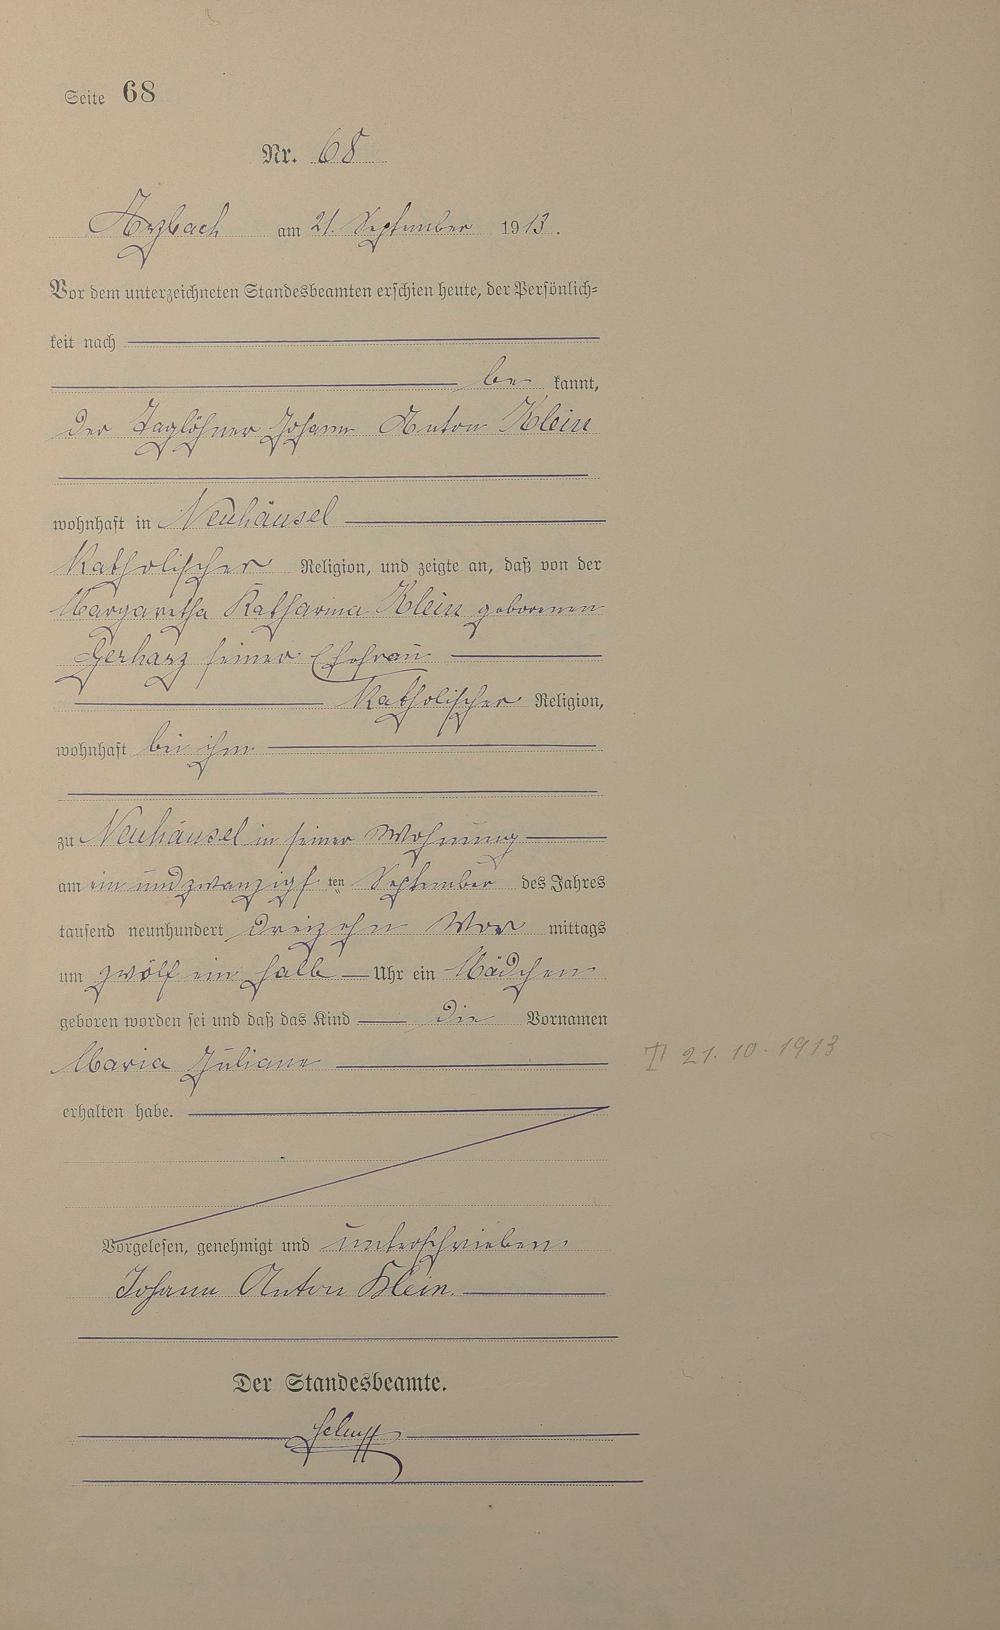 Seite 68
Nr. 68
Arzbach am 21. September 1913.
Vor dem unterzeichneten Standesbeamten erschien heute, der Persönlich=
keit nach
be kannt,
der Taglöhner Johann Anton Klein
wohnhaft in Neuhäusel
katholischer Religion, und zeigte an, daß von der
Margaretha Katharina Klein geborenen
Gerharz seiner Ehefrau
katholischer Religion,
wohnhaft bei ihm
zu Neuhäusel in seiner Wohnung
am ein und zwanzigs ten September des Jahres
tausend neunhundert dreizehn Vor mittags
um zwölf ein halb Uhr ein Mädchen
geboren worden sei und daß das Kind die Vornamen
Maria Juliane
† 21.10.1913
erhalten habe.
Vorgelesen, genehmigt und unterschrieben
Johann Anton Klein.
Der Standesbeamte.